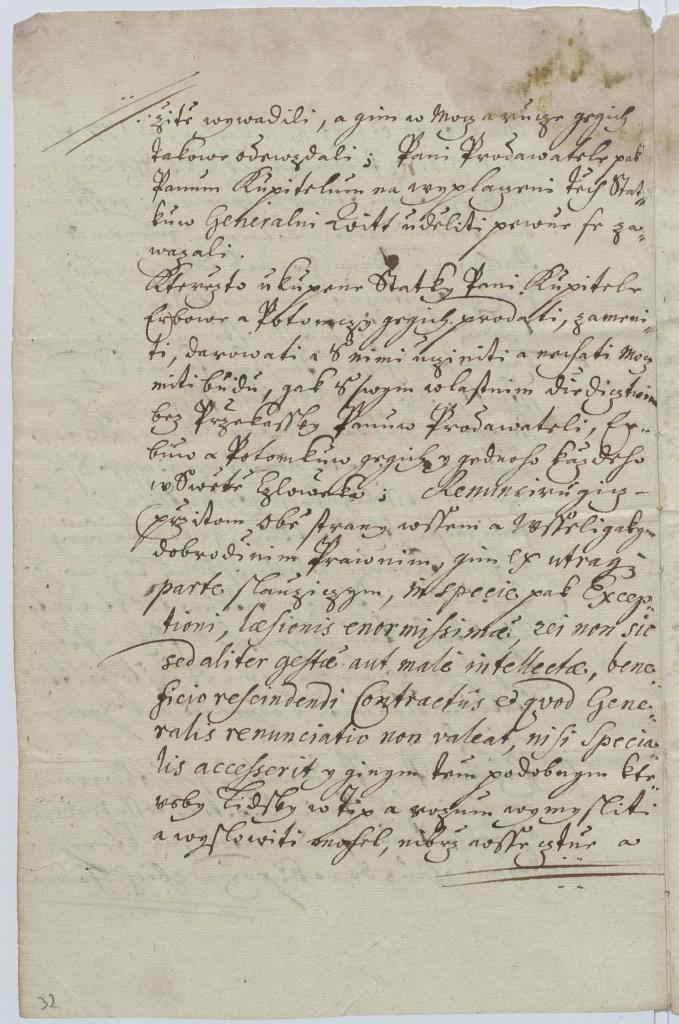 zitě wywadili, a gim w Moc a rucze gegich
takowe odewzdali; Pani Prodawatele pak
Panum Kupitelum na wyplaczeni těch Stat-
kuw Generalni Kwitt uděliti pewně se za-
wazali.
Kterezto ukupene Statky Pani Kupitele
Erbowe a Potomczy gegich prodati, zameni-
ti, darowati a S nimi učziniti a nechati Mocz
miti budú, gak S swym wlastnim dědicztwim
bez Przekassky Panuw Prodawateli, Er-
buw a Potomkuw gegich y gednoho každeho
w Swětě Czlowěka; Renuncirugicz-
przitom obě strany wssem a wsseligakym
dobrodinim Prawnim, gim ex utraq;
parte slauziczym, in specie pak Excep-
tioni, læsionis enormissimæ, rei non sic
sed aliter gestæ aut male intellectæ, bene-
ficio rescindendi Contractus et quod Gene-
ralis renunciatio non valeat, nisi Specia-
lis accesserit y ginym tem podobnym kte-
roby Lidsky wtip a rozum wymysliti
a wyslowiti mohel, nibrz wsse cztně a
32